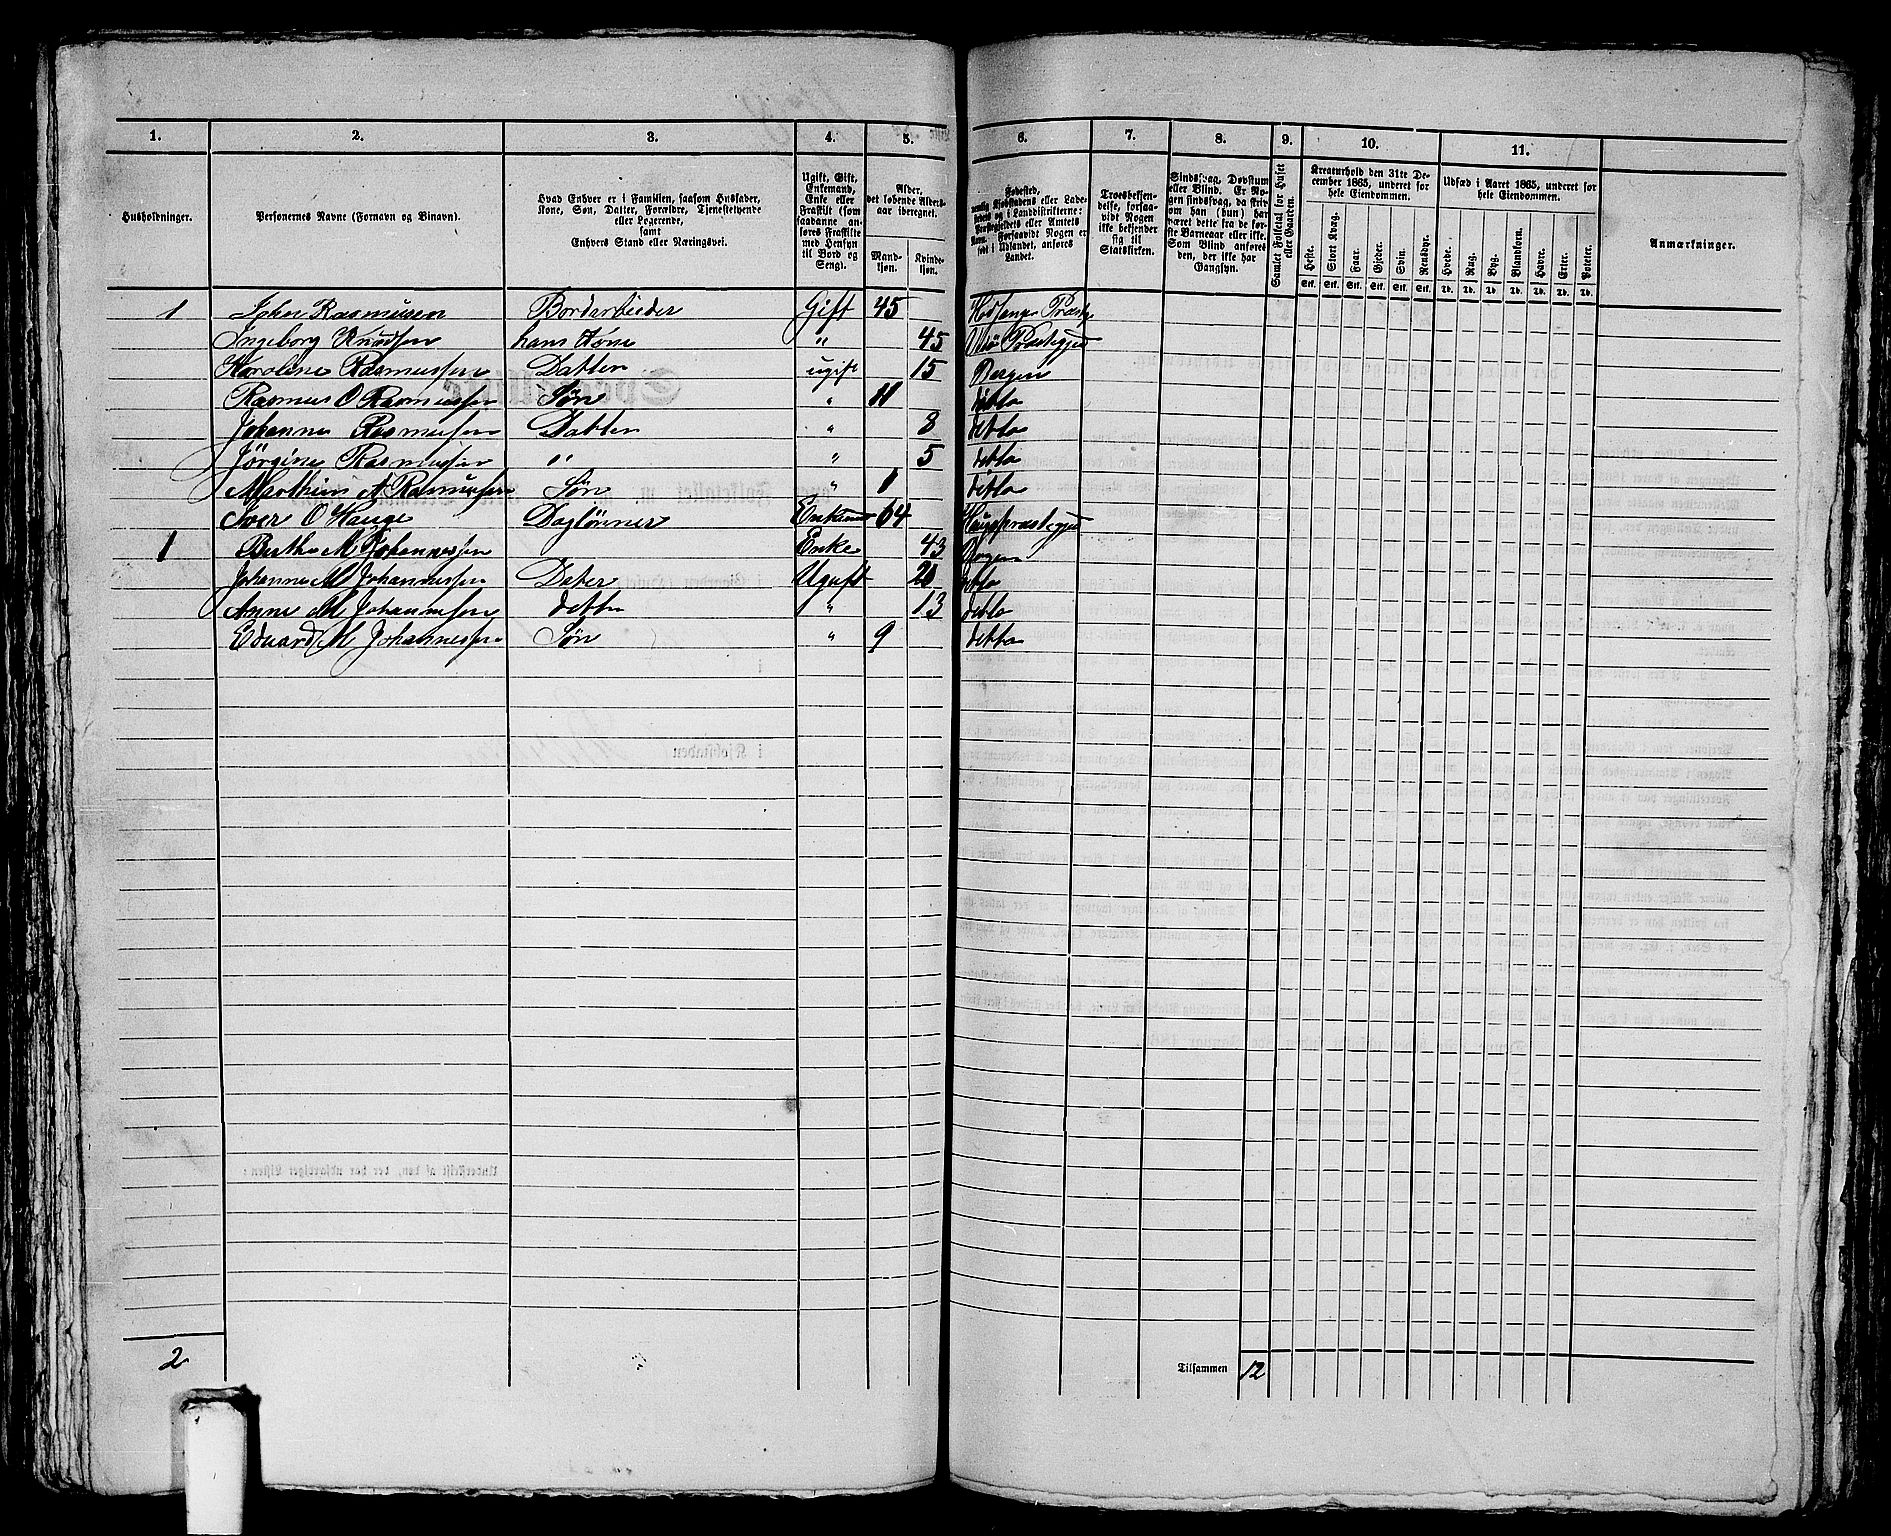 1. 2. 3. 4. 5. 6. 7. 8. 9. 10. 11.
Husholdninger.
Personernes Navne (Fornavn og Binavn).
Hvad Enhver er i Familien, saasom Husfader,
Kone, Søn, Datter, Forældre, Tjenestetyende
eller Logerende,
samt
Enhvers Stand eller Næringsvei.
Ugift, Gift,
Enkemand,
Enke eller
Fraskilt (som
saadanne an-
føres Fraskilte
med Hensyn
til Bord og
Seng).
Alder,
det løbende Alders-
aar iberegnet.
Mand-
kjøn.
Kvinde-
kjøn.
Fødested,
nemlig Kjøbstadens eller Lade-
stedets og i Landdistrikterne:
Præstegjeldets eller Amtets
Navn. Forsaavidt Nogen er
født i Udlandet, anføres
Landet.
Troesbekjen-
delse, forsaa-
vidt Nogen
ikke bekjender
sig til
Statskirken.
Sindssvag, Døvstum
eller Blind. Er No-
gen sindssvag, da skriv
om han (hun) har
været dette fra de før-
ste Barneaar eller ikke.
Som Blind anføres
den, der ikke har
Gangsyn.
Samlet Folketal for Huset
eller Gaarden.
Kreaturhold den 31te De-
cember 1865, underet for
hele Eiendommen.
Heste. Stort Kvæg. Faar. Gjeder. Svin. Rensdyr.
Stk. Stk. Stk. Stk. Stk. Stk.
Udsæd i Aaret 1865, underet for
hele Eiendommen.
Hvede. Rug. Byg. Blandkorn. Havre. Erter. Poteter.
Td. Td. Td. Td. Td. Td. Td.
Anmærkninger.
1 Rasmussen Bordarbeider Gift 45
Ingeborg Knudsen hans Kone " 45 Præstegjed
Karoline Rasmussen Datter ugift 15 Bergen
Rasmus O Rasmussen Søn " 11 ditto
Johanne Rasmussen Datter " 8 ditto
Jörgine Rasmussen " " 5 ditto
A Rasmussen Søn " 1 ditto
Iver O Hauge Daglønner Enkem 64
1 Berthe M Johannessen Enke 43 Bergen
Johanne M Johannessen Dater Ugift 20 ditto
Anne M Johannessen detto " 13 ditto
Eduard M Johannessen Søn " 9 ditto
2
Tilsammen 12